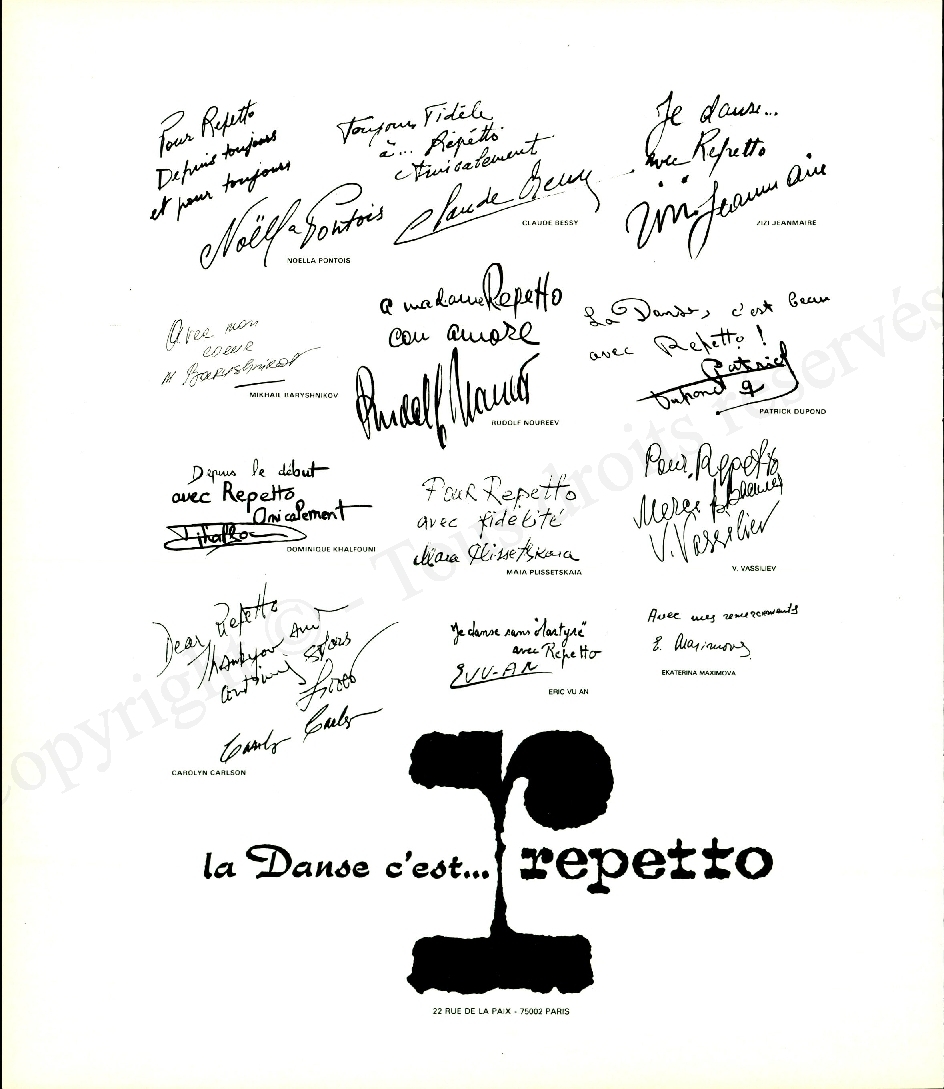 Pour Repetto
Depuis toujours
et pour toujours
Noëlla Pontois
NOELLA PONTOIS
Toujours Fidèle
à... Répétto
Amicalement
Claude Bessy
CLAUDE BESSY
Je danse...
avec Repetto
Zizi Jeanmaire
ZIZI JEANMAIRE
Avec mon
coeur
M Baryshnikov
MIKHAIL BARYSHNIKOV
a madame Repetto
con amore
Rudolf Noureev
RUDOLF NOUREEV
La Danse, c'est beau
avec Repetto !
Patrick
Dupond
PATRICK DUPOND
Depuis le début
avec Repetto
Amicalement
DOMINIQUE KHALFOUNI
Pour Repetto
avec fidélité
Maia Plissetskaia
MAIA PLISSETSKAIA
Pour Repetto
V. Vassiliev
V. VASSILIEV
Dear Repetto
Thankyou
Carolyn Carlson
CAROLYN CARLSON
Je danse sans "Martyre"
avec Repetto
E VU-AN
ERIC VU AN
Avec mes remerciements
E. Maximova
EKATERINA MAXIMOVA
la Danse c'est... repetto
22 RUE DE LA PAIX - 75002 PARIS
Copyright © - Tous droits réservés